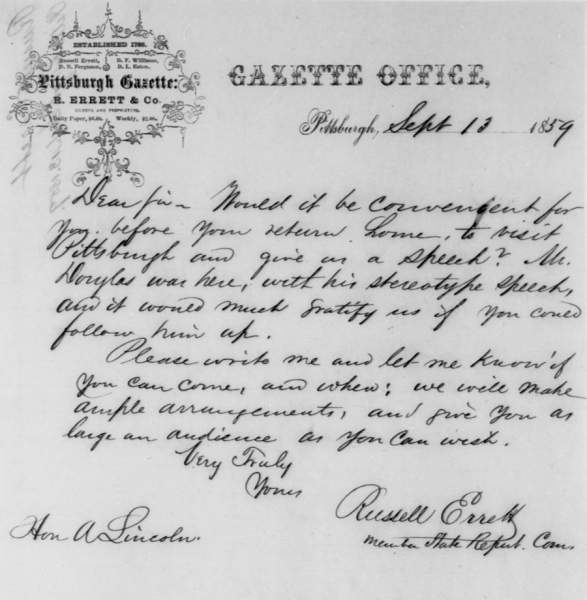 ESTABLISHED 1786.
Russell Errett, D. P. Williams,
D. N. Ferguson, D. L. Eaton.
Pittsburgh Gazette:
R. ERRETT & Co.
EDITORS AND PROPRIETORS.
Daily Paper, $6.00. Weekly, $2.00.
GAZETTE OFFICE,
Pittsburgh, Sept 13 1859
Dear Sir – Would it be convenient for
you, before your return home, to visit
Pittsburgh and give us a speech? Mr.
Douglas was here, with his stereotype speech,
and it would much gratify us if you could
follow him up.
Please write me and let me know if
you can come, and when; we will make
ample arrangements, and give you as
large an audience as you can wish.
Very Truly
Yours
Russell Errett
Member State Repub. Com
Hon A Lincoln.